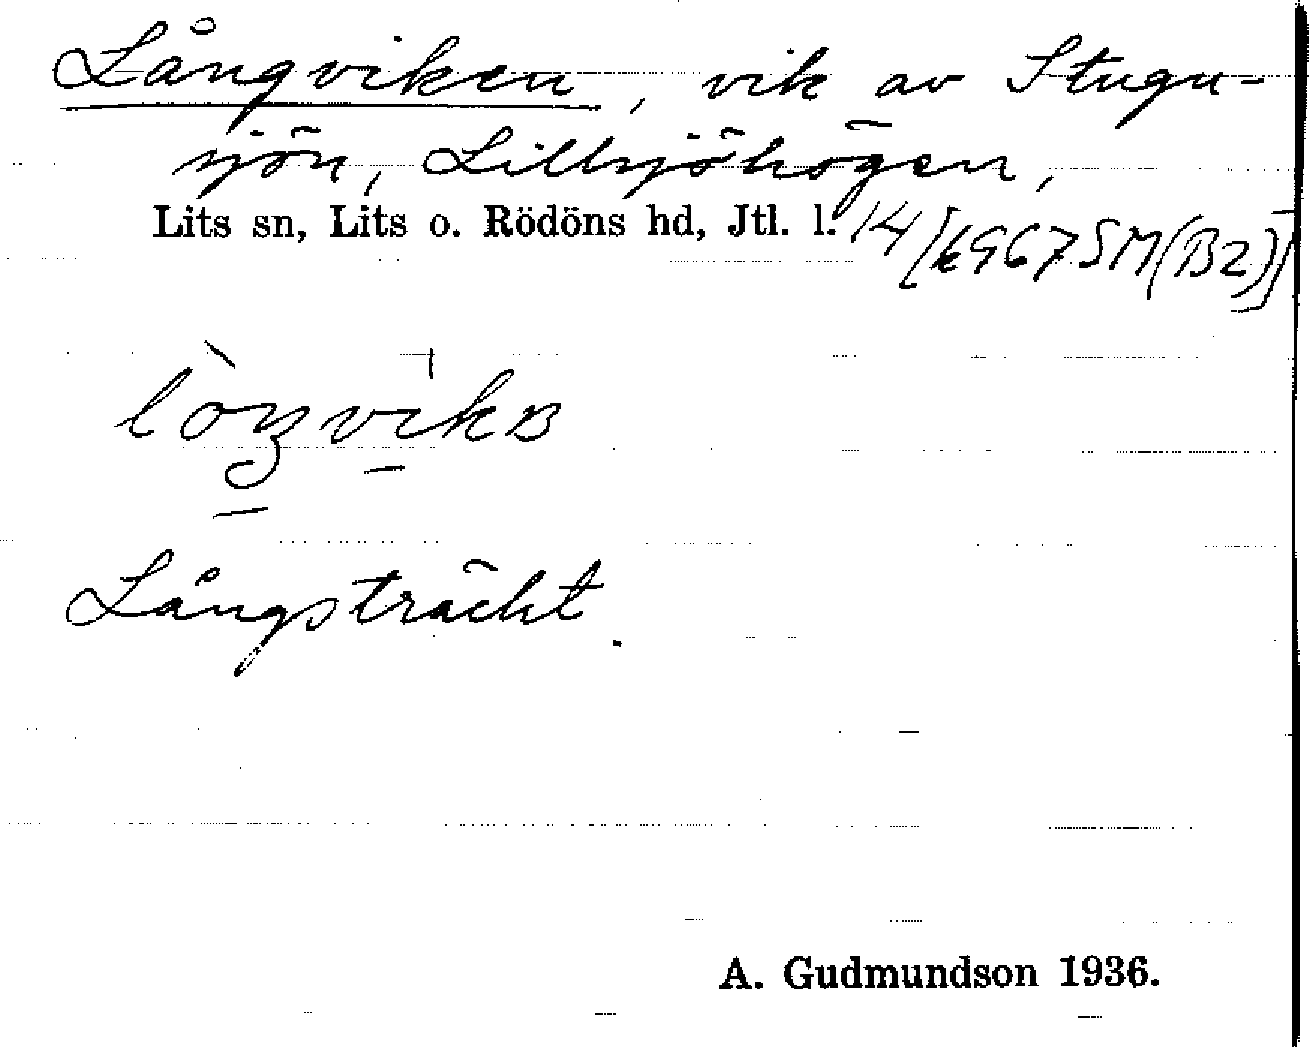 Långviken, vik av Stugu-
sjön, Lillsjöhögen,
Lits sn, Lits o. Rödöns hd, Jtl. l. 14 [6967 SM(B2)]
Långsträckt.
A. Gudmundson 1936.